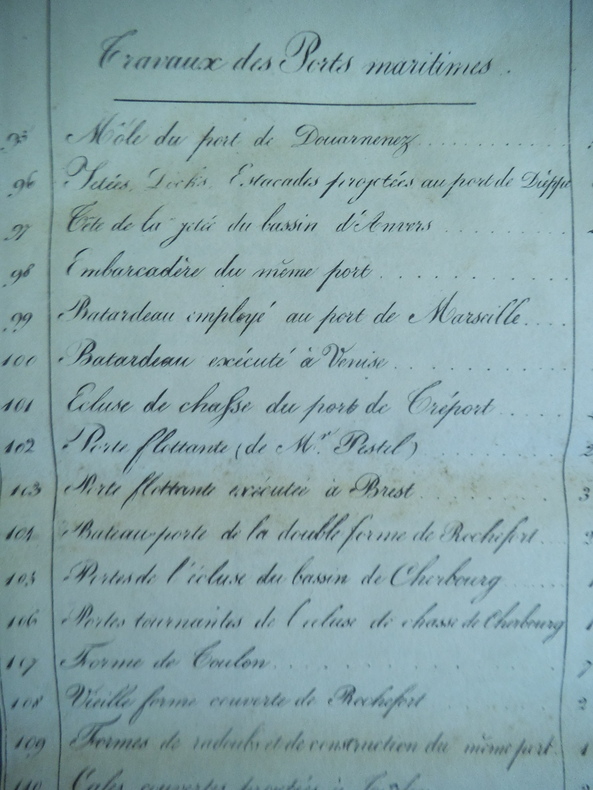 Travaux des Ports maritimes.
95 Môle du port de Douarnenez
96 Jetées, Docks, Estacades projetées au port de Dieppe
97 Tête de la jetée du bassin d'Anvers
98 Embarcadère du même port
99 Batardeau employé au port de Marseille
100 Batardeau exécuté à Venise
101 Ecluse de chasse du port de Tréport
102 Porte flottante (de Mr. Pestel)
103 Porte flottante exécutée à Brest
104 Bateau-porte de la double forme de Rochefort
105 Portes de l'écluse du bassin de Cherbourg
106 Portes tournantes de l'ecluse de chasse de Cherbourg
107 Forme de Toulon
108 Vieille forme couverte de Rochefort
109 Formes de radoubs et de construction du même port
110 Cales couvertes projetées à